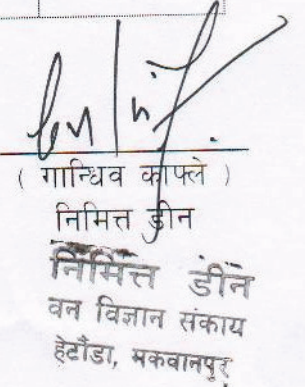 ( गान्धिव काफ्ले )
निमित्त डीन
निमित्त डीन
वन विज्ञान संकाय
हेटौंडा, मकवानपुर